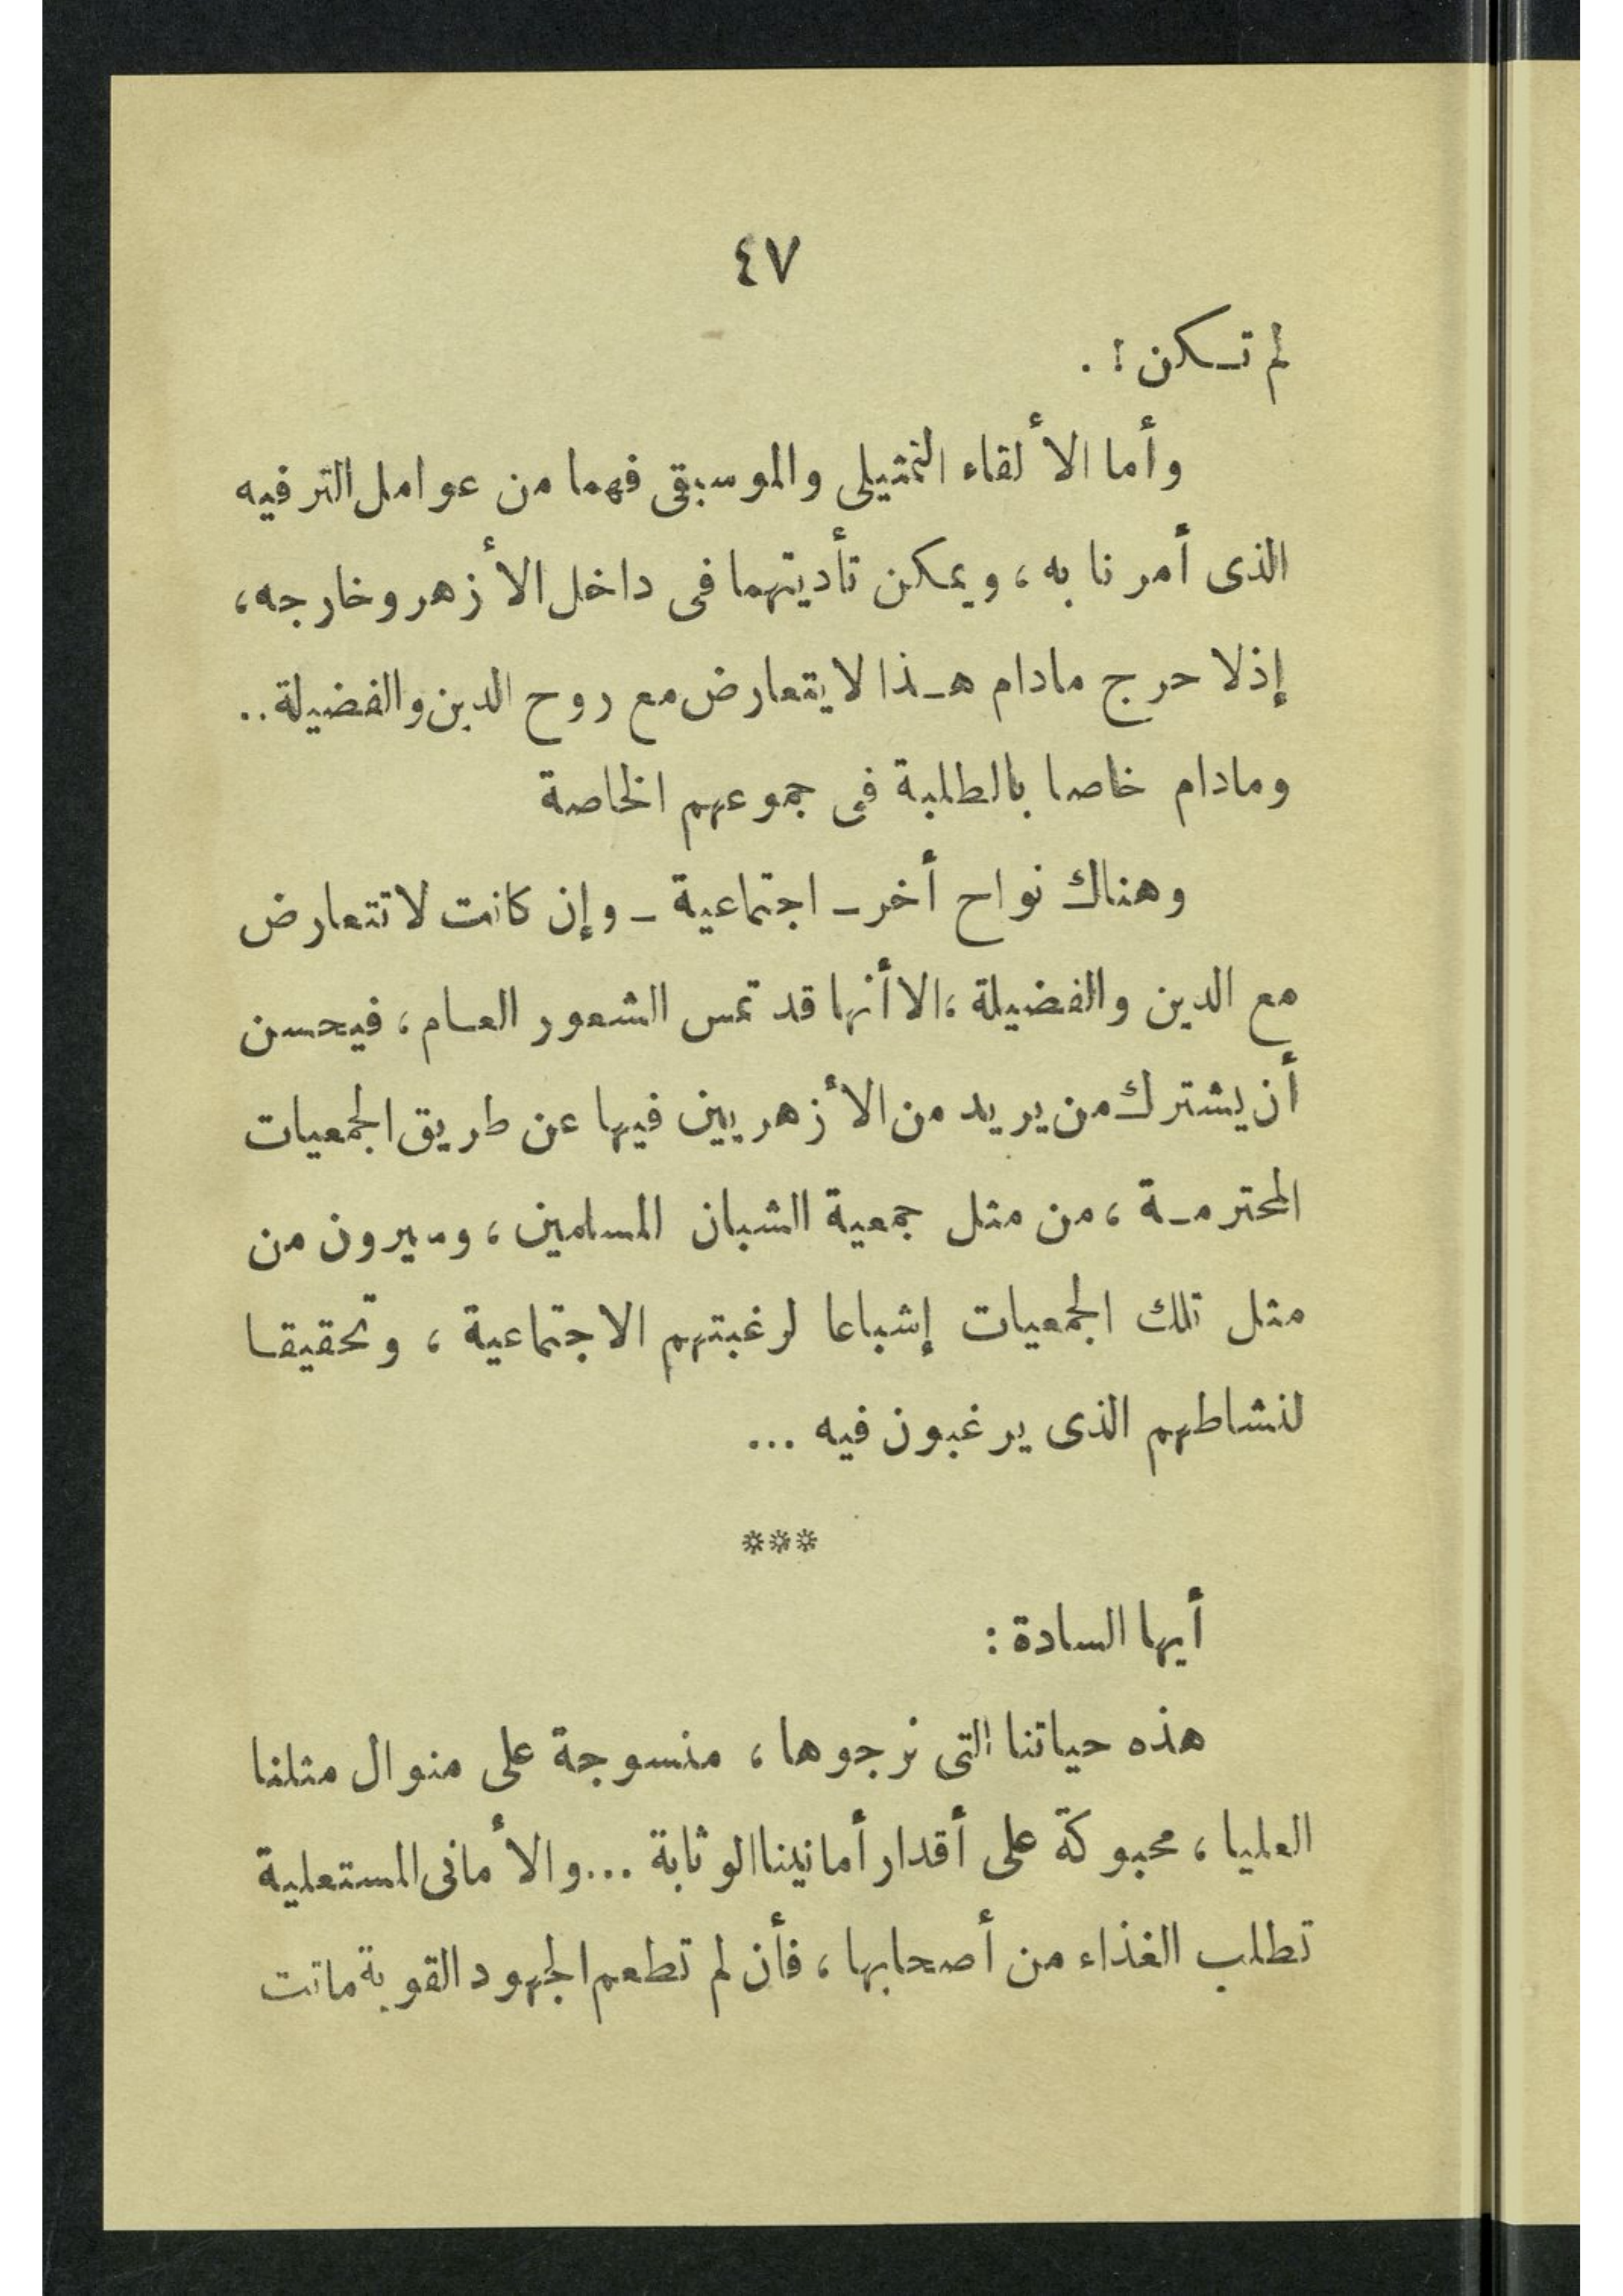 ٤٧
لم تكن ! .
وأما الألقاء التمثيلى والموسيقى فهما من عوامل الترفيه
الذى أمرنا به ، ويمكن تأديتهما فى داخل الأزهر وخارجه ،
إذلا حرج مادام هذا لا يتعارض مع روح الدين والفضيلة ..
ومادام خاصا بالطلبة فى جموعهم الخاصة
وهناك نواح أخر ـ اجتماعية ـ وإن كانت لا تتعارض
مع الدين والفضيلة ، الا أنها قد تمس الشعور العام ، فيحسن
أن يشترك من يريد من الأزهريين فيها عن طريق الجمعيات
المحترمة ، من مثل جمعية الشبان المسلمين ، وسيرون من
مثل تلك الجمعيات إشباعا لرغبتهم الاجتماعية ، وتحقيقا
لنشاطهم الذى يرغبون فيه ...
***
أيها السادة :
هذه حياتنا التى نرجوها ، منسوجة على منوال مثلنا
العليا ، محبوكة على أقدار أمانينا الوثابة ... والأمانى المستعلية
تطلب الغذاء من أصحابها ، فأن لم تطعم الجهود القوية ماتت